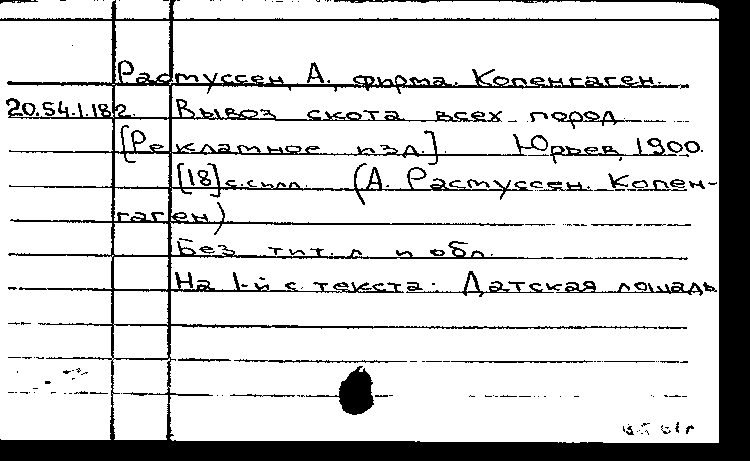 Растуссен, А., фирма. Копенгаген.
20.54.1.182. Вывоз скота всех пород
[Рекламное изд.] Юрьев, 1900.
[18] с. с илл. (А. Растуссен. Копен-
гаген)
Без тит. л. и обл.
На 1-й с. текста: Датская лошадь